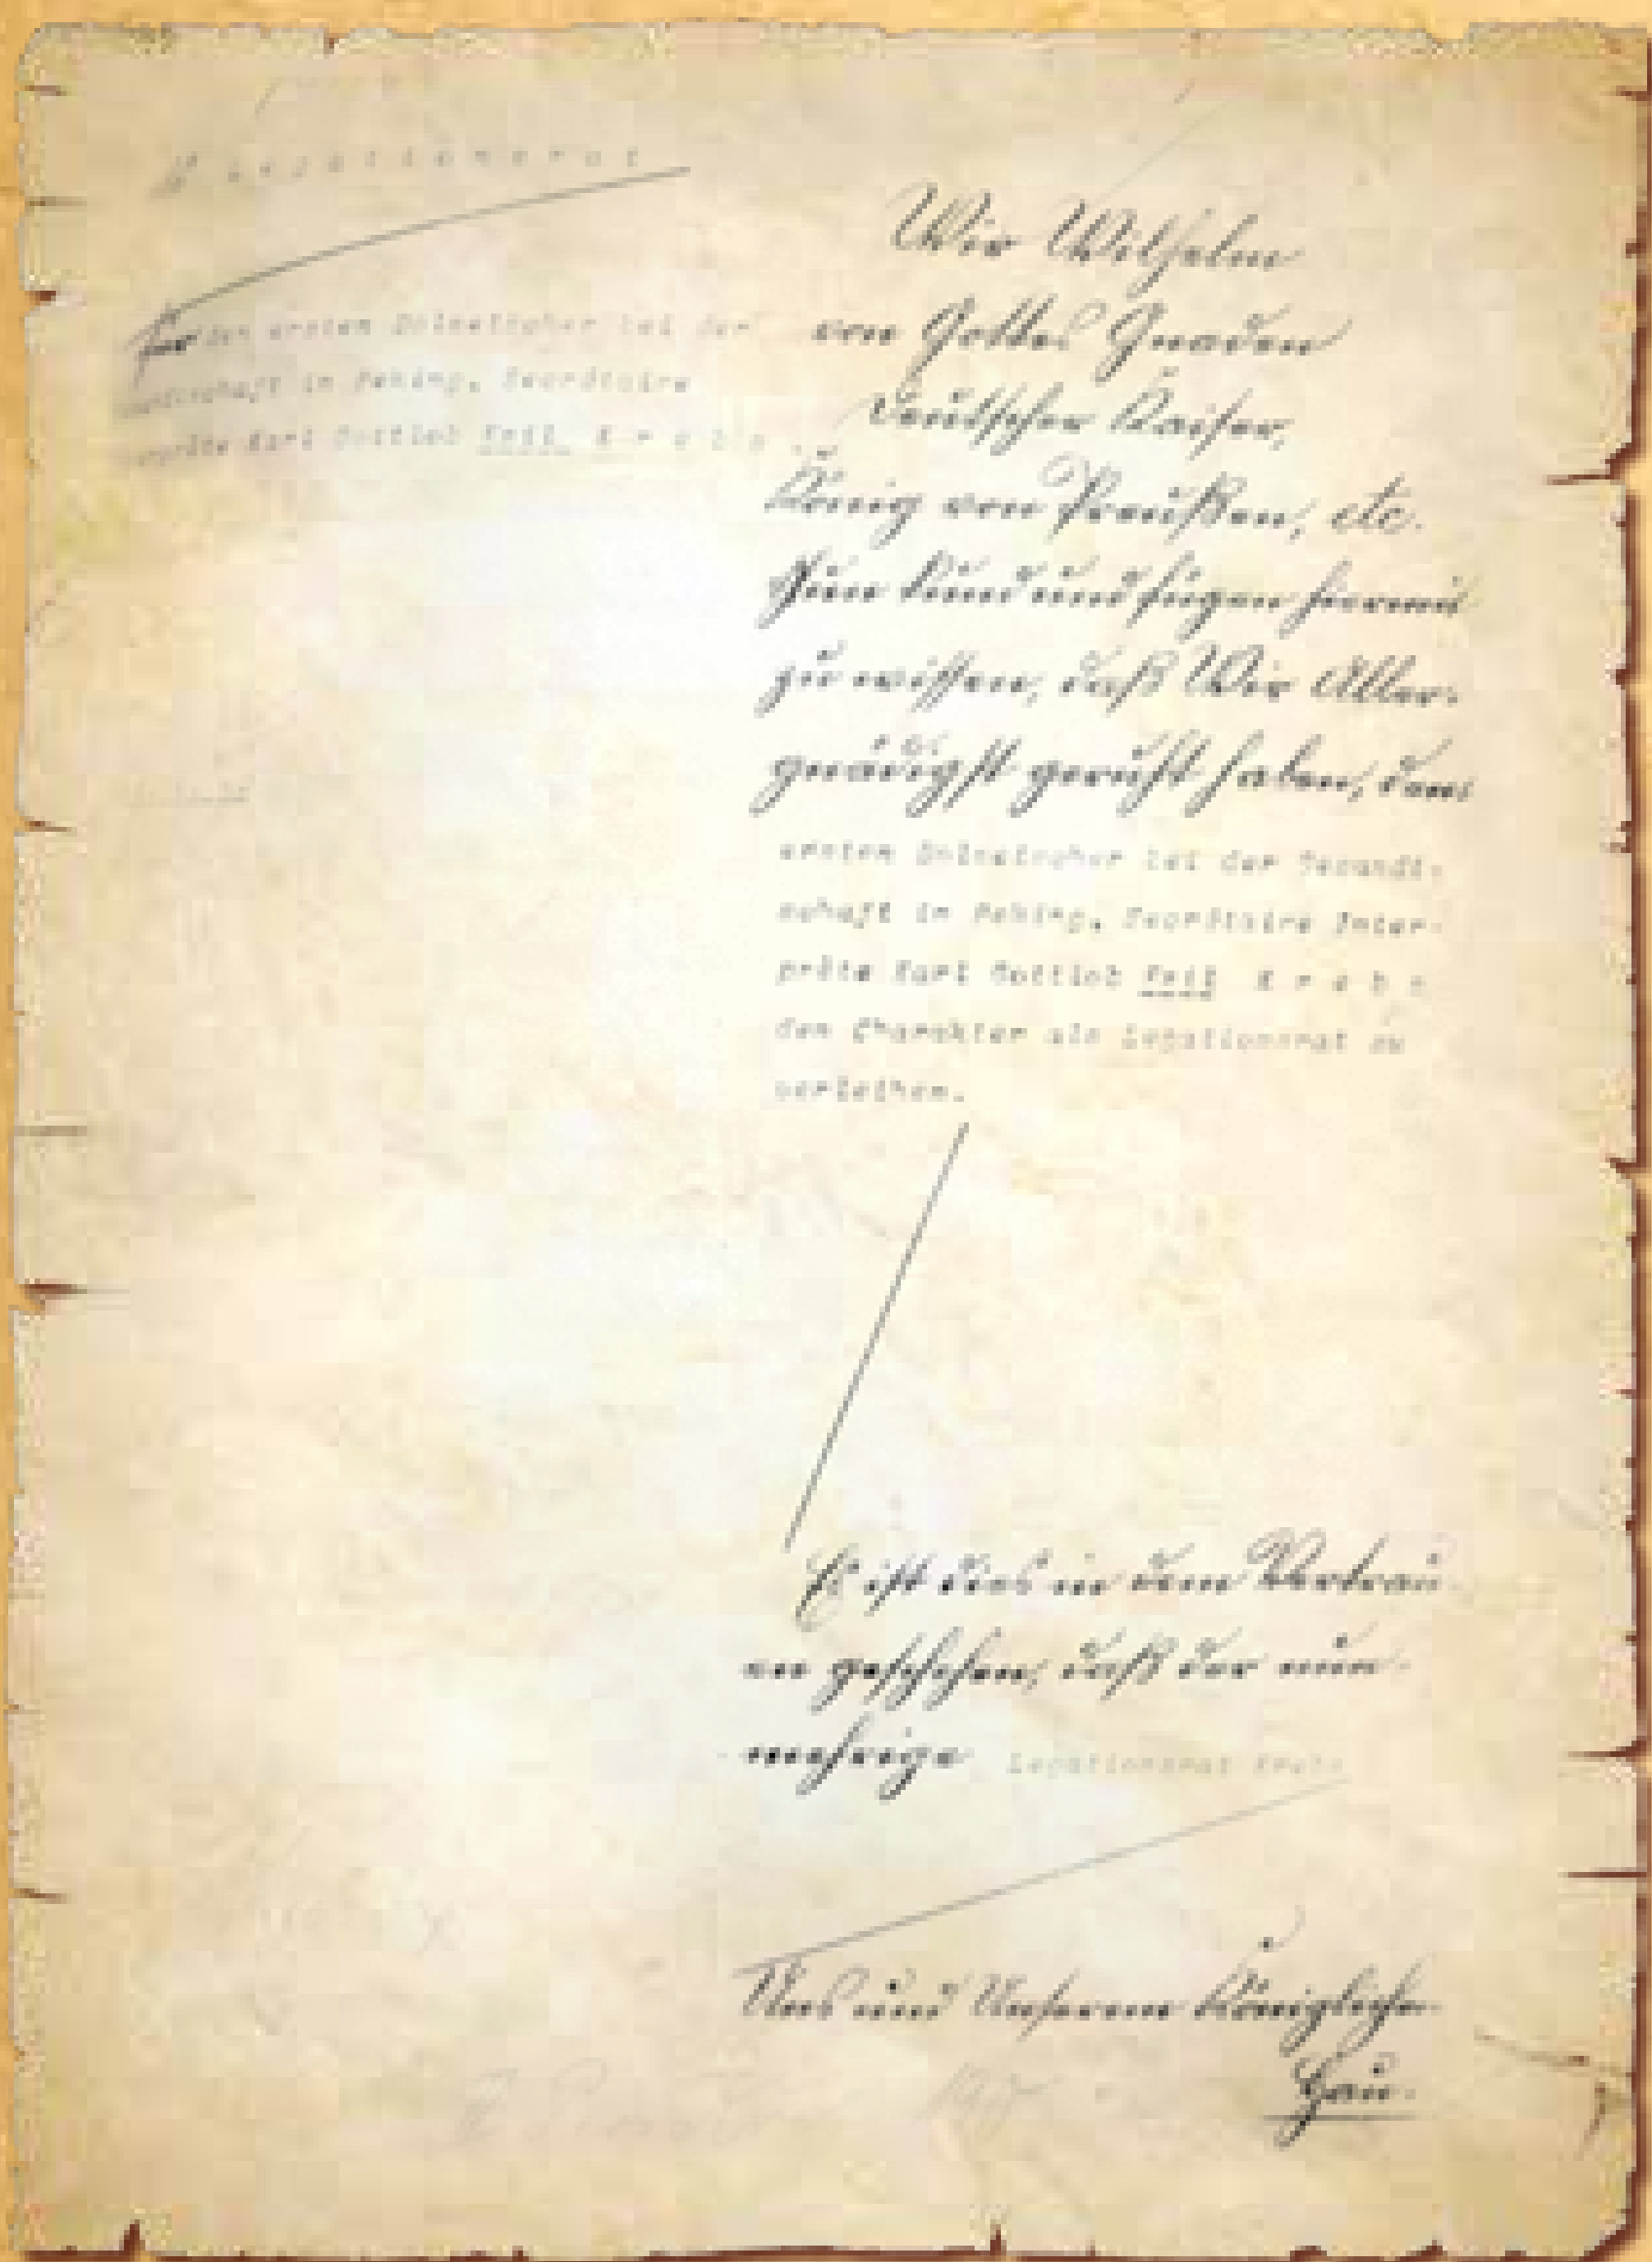 Legationsrat
für den ersten Dolmetscher bei der
Gesandtschaft in Peking, Secrétaire
Interprète Karl Gottlieb Emil Krebs.
Wir Wilhelm
von Gottes Gnaden
Deutscher Kaiser,
König von Preußen, etc.
Thun kund und fügen hiermit
zu wissen, daß Wir Aller-
gnädigst geruht haben, dem
ersten Dolmetscher bei der Gesandt-
schaft in Peking, Secrétaire Inter-
prète Karl Gottlieb Emil Krebs
den Charakter als Legationsrat zu
verleihen.
Es ist dies in dem Vertrau-
en geschehen, daß der nun-
mehrige Legationsrat Krebs
Uns und Unserem Königlichen
Hau-